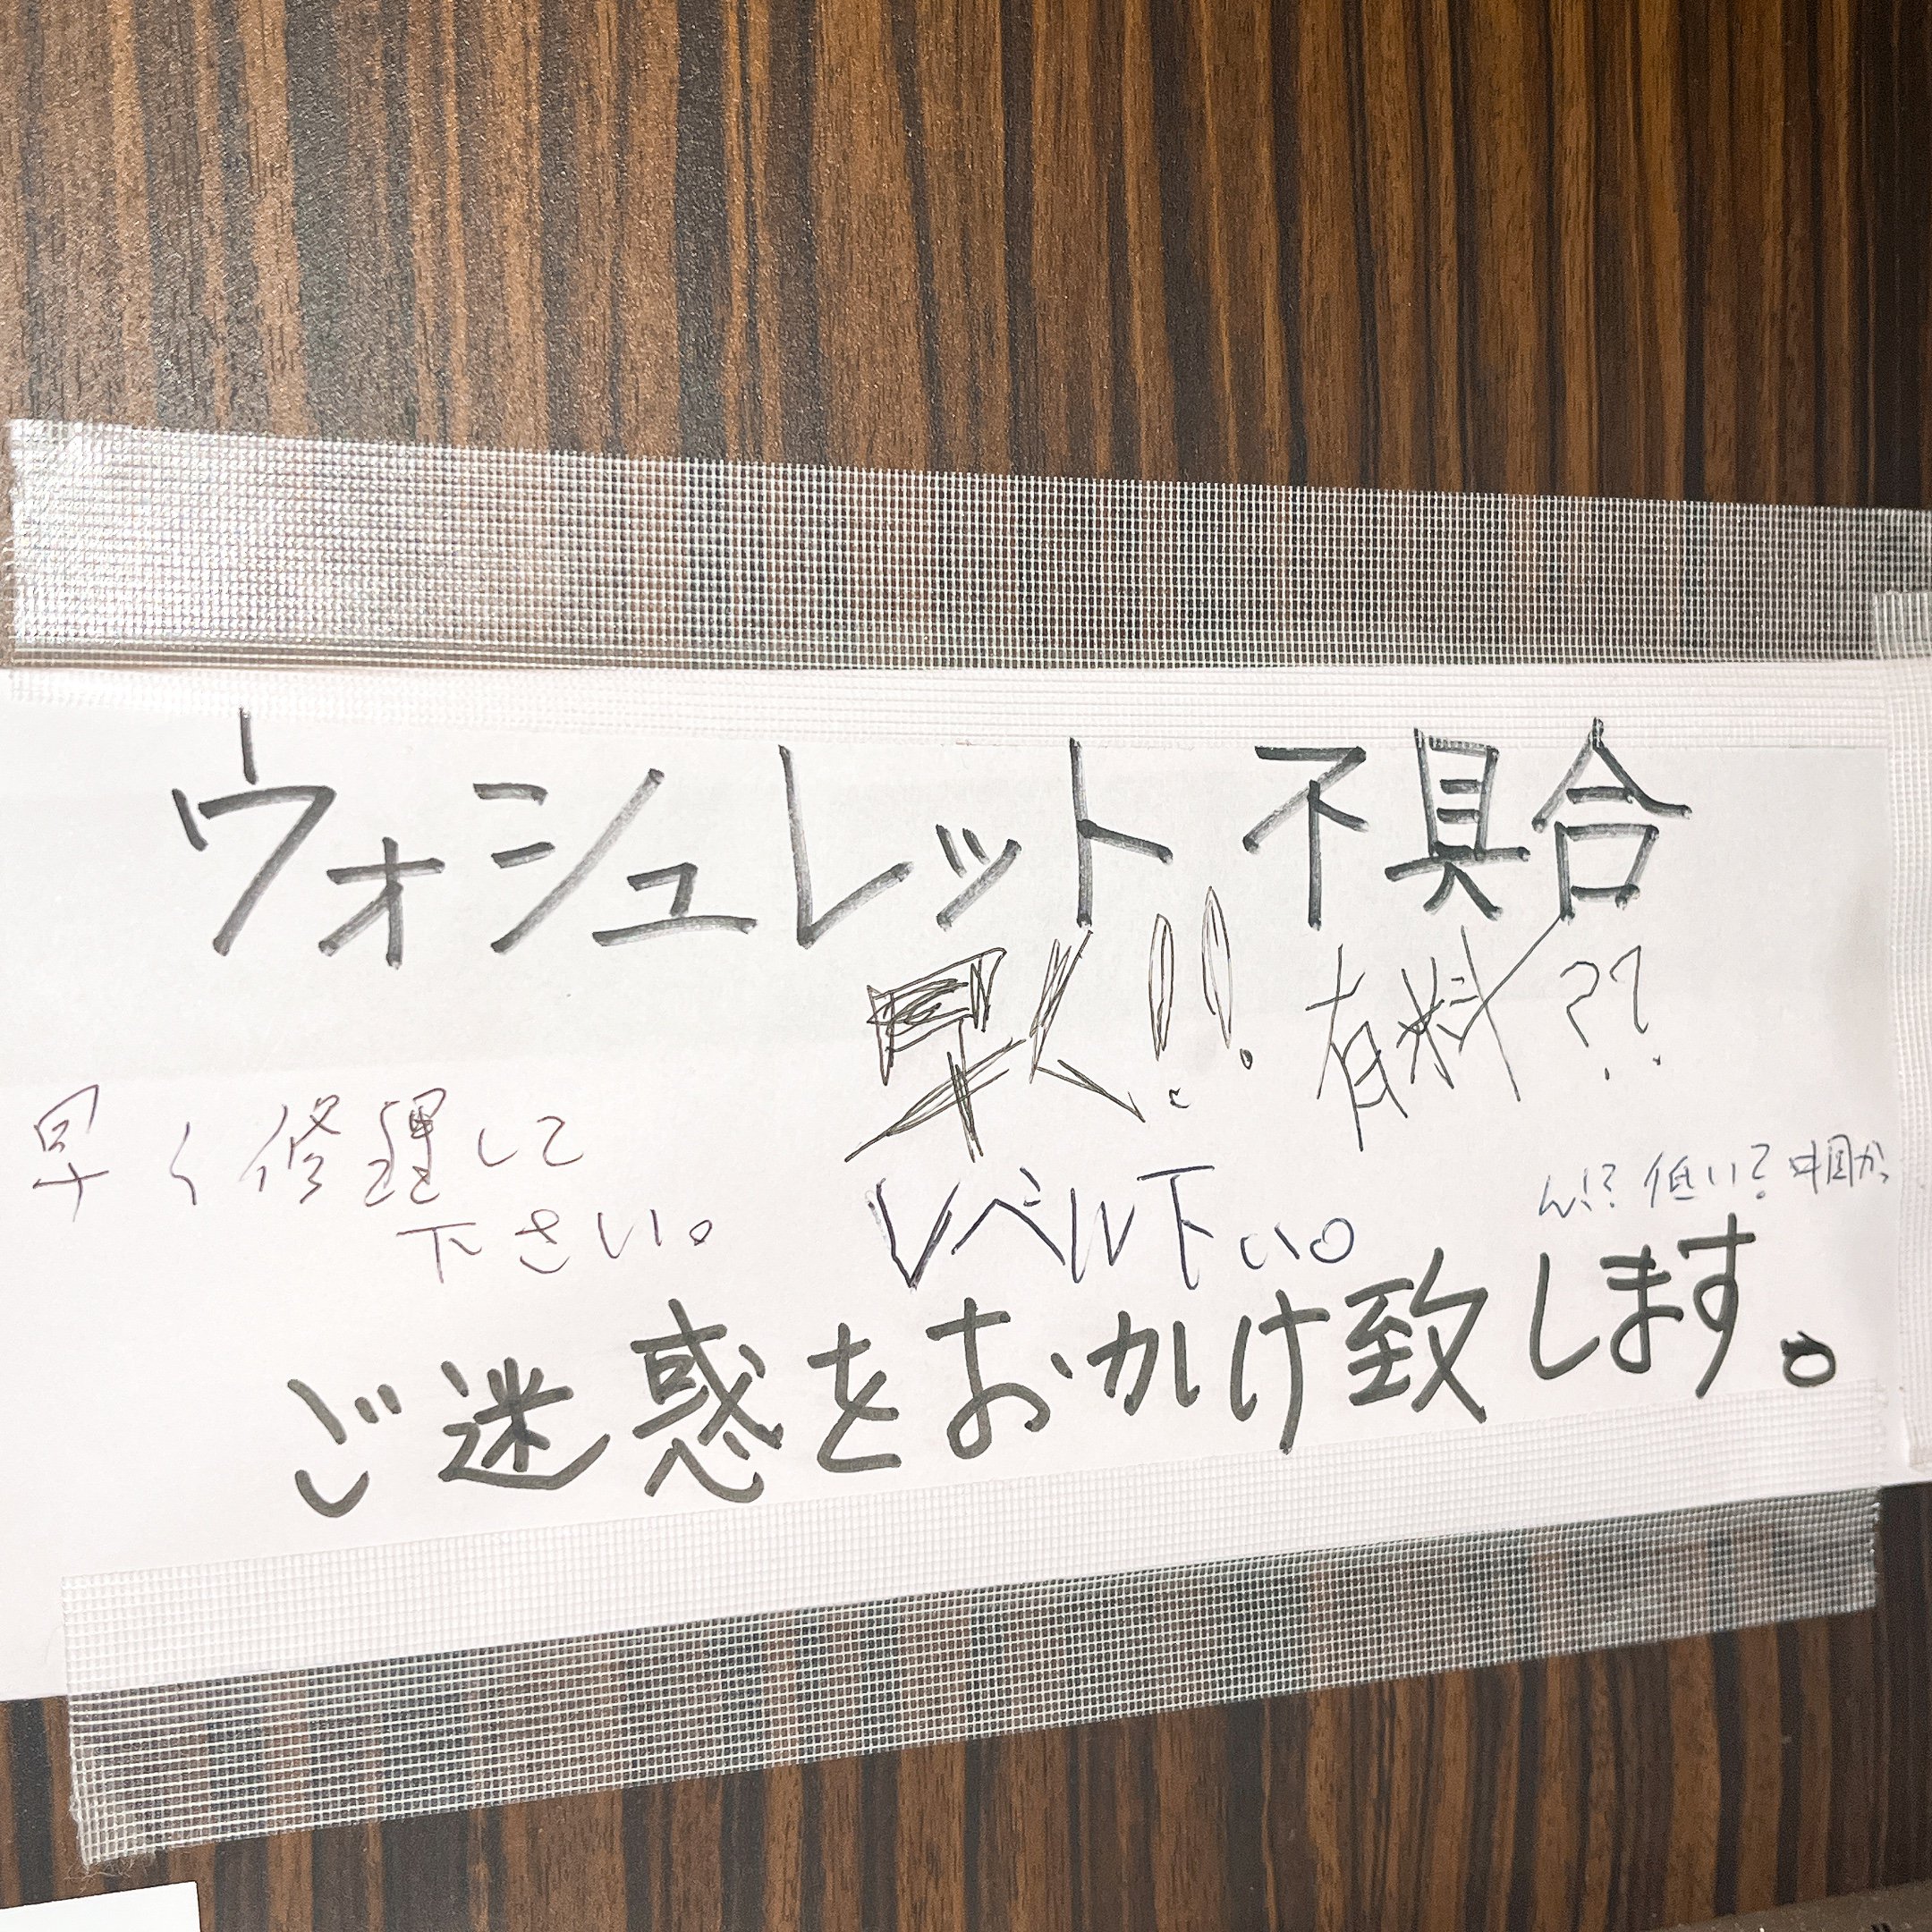 ウォシュレット 不具合
早く!! 有料??
早く修理して
下さい。
レベル下い。
ん!? 低い? 中国か
ご迷惑をおかけ致します。